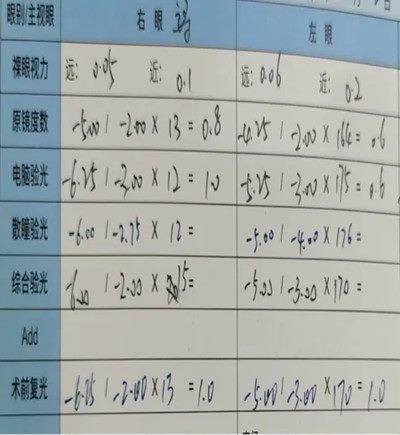 眼别/主视眼 右眼 左眼
裸眼视力 远: 0.05 近: 0.1 远: 0.06 近: 0.2
原镜度数 -5.00 / -2.00 X 13 = 0.8 -4.25 / -2.00 X 164 = 0.6
电脑验光 -6.25 / -3.00 X 12 = 1.0 -5.25 / -3.00 X 175 = 0.6
散瞳验光 -6.00 / -2.75 X 12 = -5.00 / -4.00 X 176 =
综合验光 -6.00 / -2.00 X 15 = -5.00 / -3.00 X 170 =
Add
术前复光 -6.25 / -2.00 X 13 = 1.0 -5.00 / -3.00 X 170 = 1.0